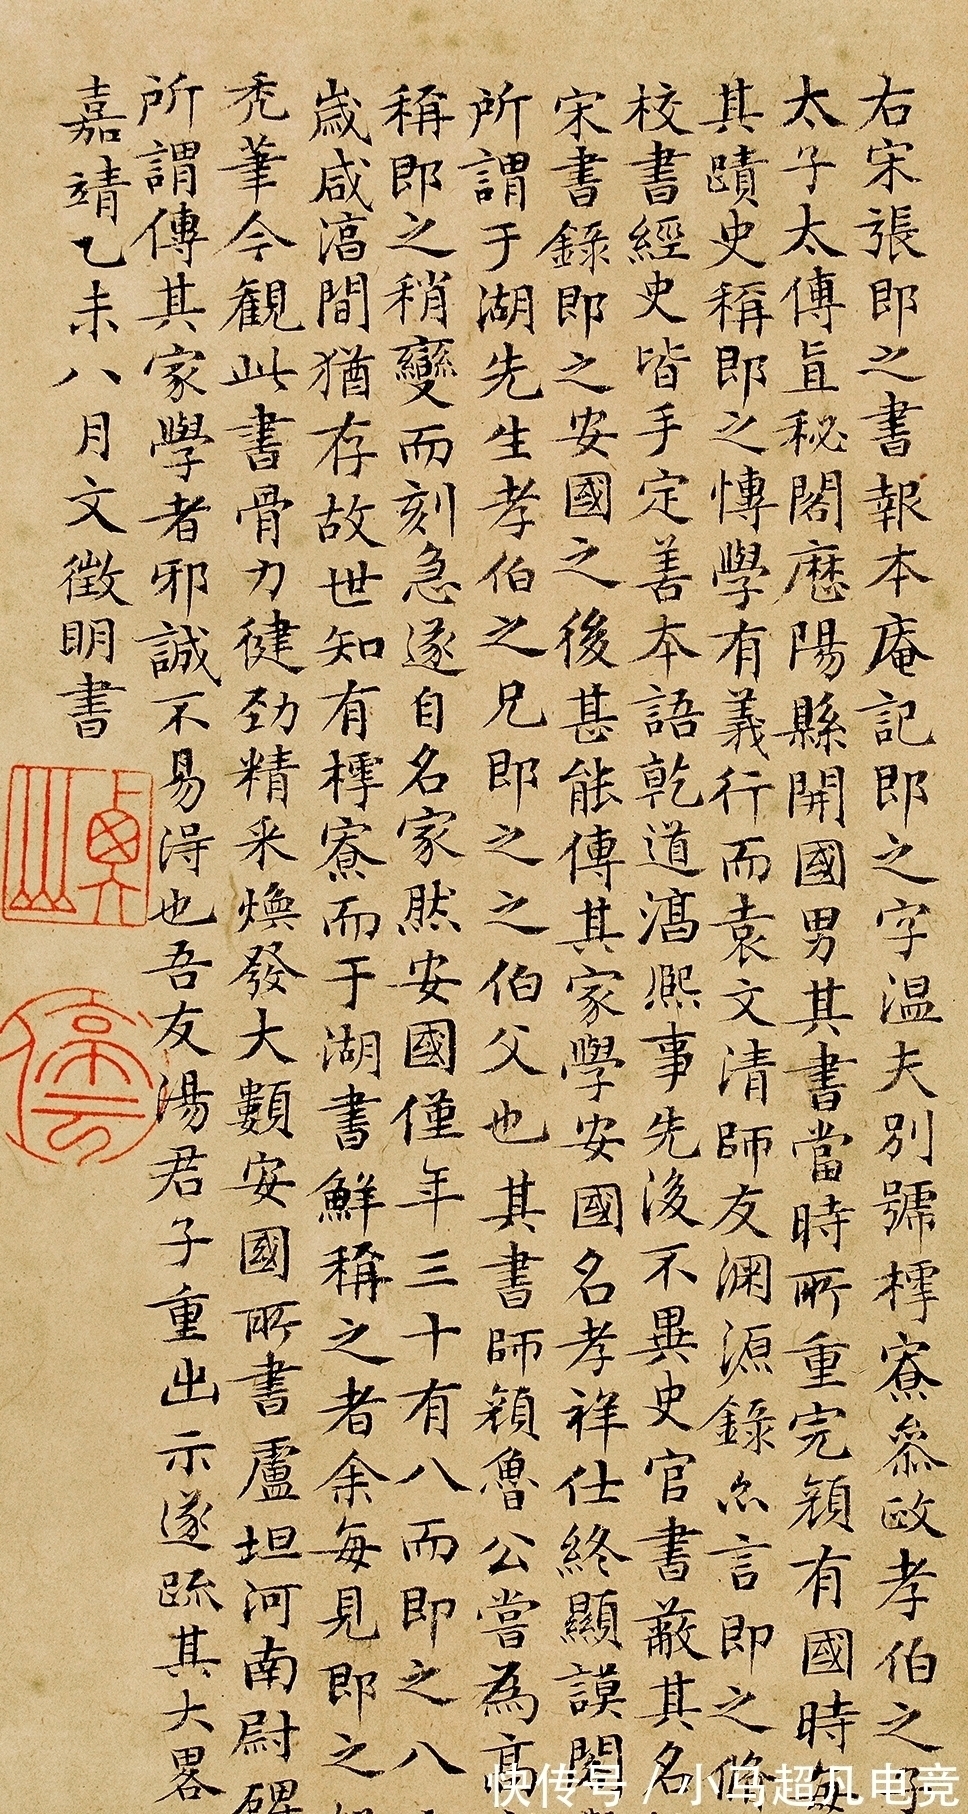 右宋張即之書報本庵記即之字溫夫別號樗寮叅政孝伯之子
太子太傅直秘閣歷陽縣開國男其書當時所重完顏有國時每
其蹟史稱即之博學有義行而袁文清師友淵源錄亦言即之脩
校書經史皆手定善本語乾道淳熙事先後不異史官書蔽其名
宋書錄即之安國之後甚能傳其家學安國名孝祥仕終顯謨閣
所謂于湖先生孝伯之兄即之之伯父也其書師顏魯公嘗為高
稱即之稍變而刻急遂自名家然安國僅年三十有八而即之八
歲咸淳間猶存故世知有樗寮而于湖書鮮稱之者余每見即之
禿筆今觀此書骨力健勁精采煥發大類安國所書盧坦河南尉碑
所謂傳其家學者邪誠不易得也吾友湯君子重出示遂疏其大畧
嘉靖乙未八月文徵明書
快传号/小马超凡电竞